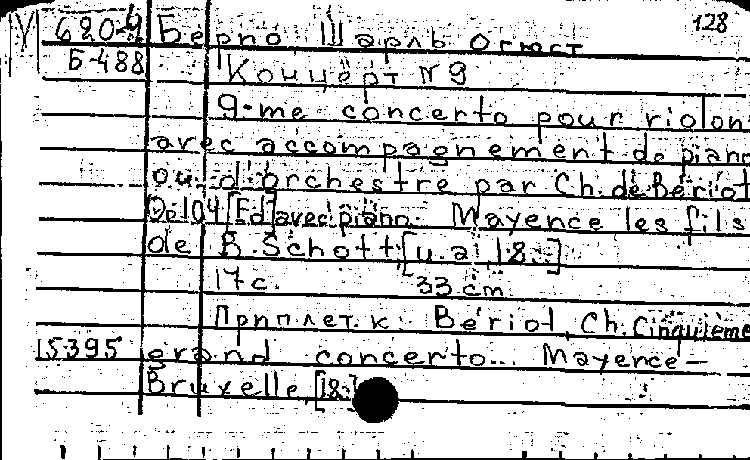 128
620-4 Берио, Шарль Огюст
Б-488 Концерт N 9
9-me concerto pour violon
avec accompagnement de piano
ou d'orchestre par Ch. de Bériot
Op. 104 [Ed] avec piano. Mayence les fils
de B. Schott, [u. a.] 18..]
17 с. 33 cm
Приплет. к: Bériot, Ch. Cinquième
15395 grand concerto... Mayence—
Bruxelle, [18.]